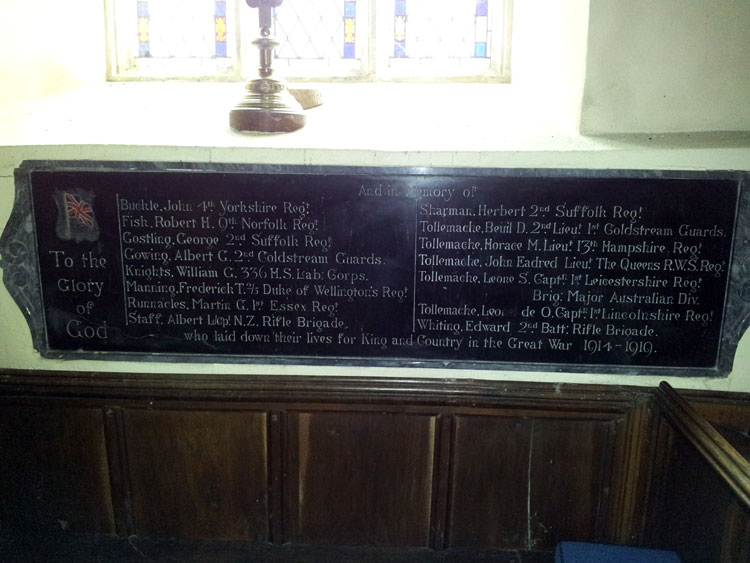 To the
Glory
of
God
And in Memory of
Buckle, John 4th Yorkshire Regt
Fish, Robert H. 9th Norfolk Regt
Gostling, George 2nd Suffolk Regt
Gowing, Albert G. 2nd Coldstream Guards.
Knights, William G. 336 H.S. Lab: Corps.
Manning, Frederick T. 2/5 Duke of Wellington's Regt
Runnacles, Martin G. 1st Essex Regt
Staff, Albert L/cpl N.Z. Rifle Brigade.
Sharman, Herbert 2nd Suffolk Regt
Tollemache, Bevil D. 2nd Lieut 1st Coldstream Guards.
Tollemache, Horace M. Lieut 13th Hampshire Regt
Tollemache, John Eadred Lieut The Queens R.W.S. Regt
Tollemache, Leone S. Captn 1st Leicestershire Regt
Brig: Major Australian Div.
Tollemache, de O. Captn 1st Lincolnshire Regt
Whiting, Edward 2nd Batt: Rifle Brigade.
who laid down their lives for King and Country in the Great War 1914-1919.